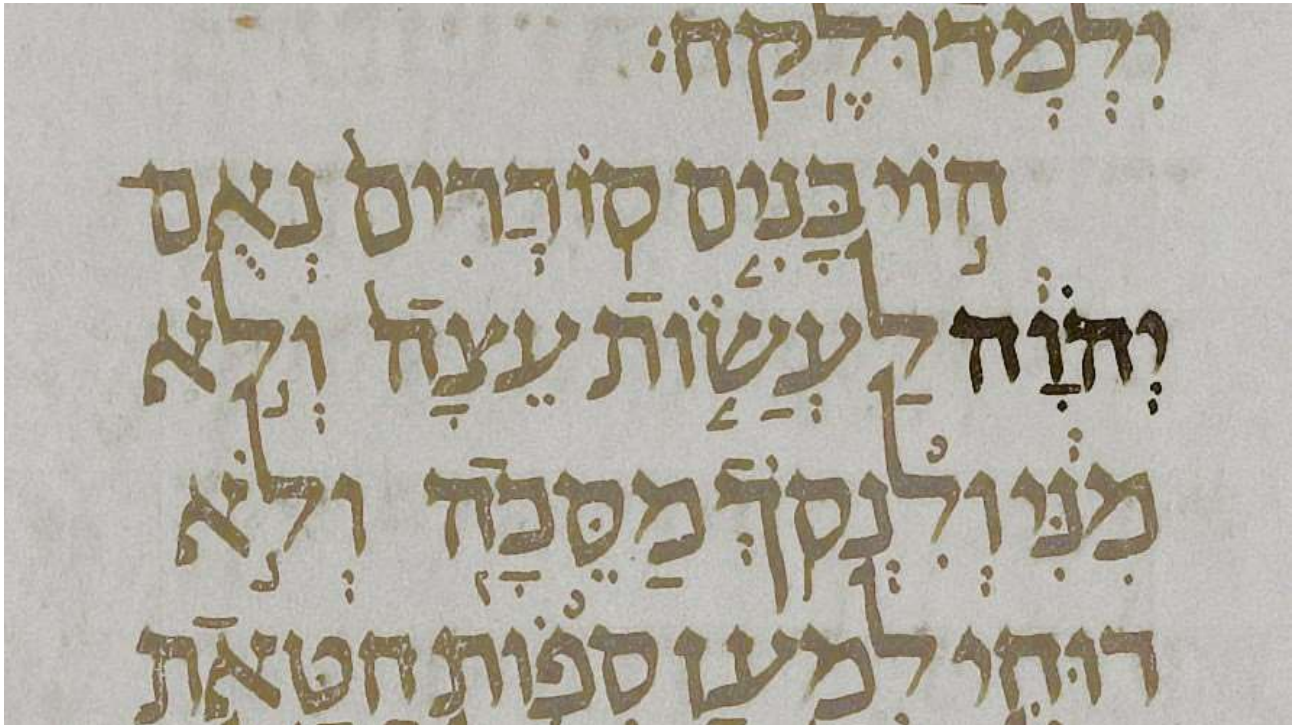 יִלְמְדוּ־לֶקַח׃
הוֹי בָּנִים סוֹרְרִים נְאֻם־
יְהֹוָה לַעֲשׂוֹת עֵצָה וְלֹא
מִנִּי וְלִנְסֹךְ מַסֵּכָה וְלֹא
רוּחִי לְמַעַן סְפוֹת חַטָּאת